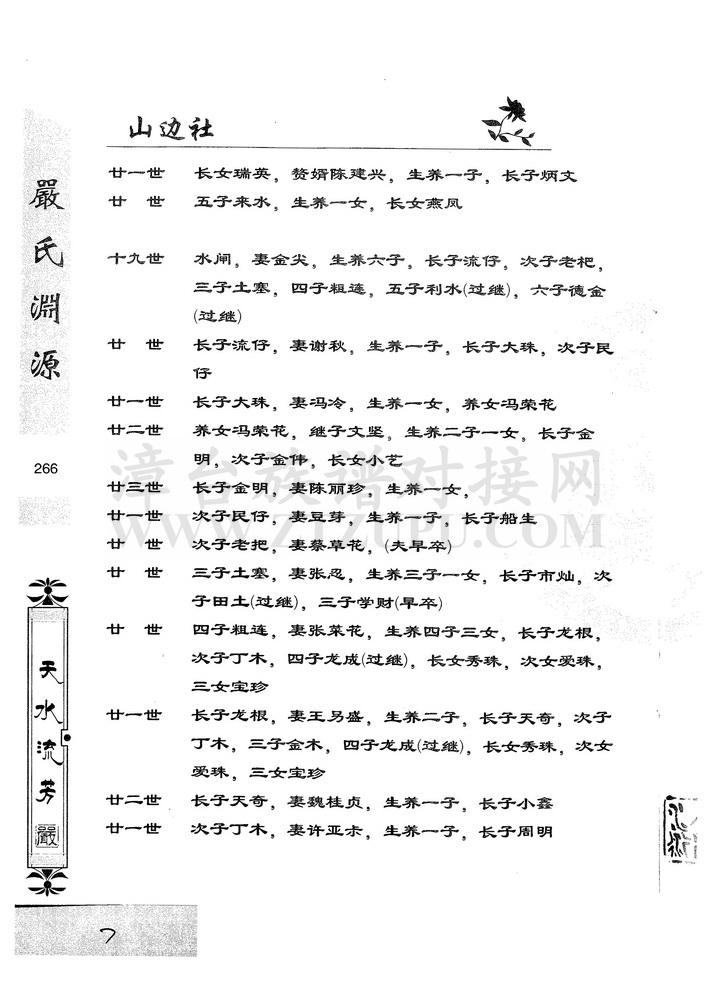 山边社
廿一世 长女瑞英，赘婿陈建兴，生养一子，长子炳文
廿 世 五子来水，生养一女，长女燕凤
十九世 水闸，妻金尖，生养六子，长子流仔，次子老杷，
三子土塞，四子粗连，五子利水(过继)，六子德金
(过继)
廿 世 长子流仔，妻谢秋，生养一子，长子大珠，次子民
仔
廿一世 长子大珠，妻冯冷，生养一女，养女冯荣花
廿二世 养女冯荣花，继子文坚，生养二子一女，长子金
明，次子金伟，长女小艺
廿三世 长子金明，妻陈丽珍，生养一女，
廿一世 次子民仔，妻豆芽，生养一子，长子船生
廿 世 次子老把，妻蔡草花，(夫早卒)
廿 世 三子土塞，妻张忍，生养三子一女，长子市灿，次
子田土(过继)，三子学财(早卒)
廿 世 四子粗连，妻张菜花，生养四子三女，长子龙根，
次子丁木，四子龙成(过继)，长女秀珠，次女爱珠，
三女宝珍
廿一世 长子龙根，妻王另盛，生养二子，长子天奇，次子
丁木，三子金木，四子龙成(过继)，长女秀珠，次女
爱珠，三女宝珍
廿二世 长子天奇，妻魏桂贞，生养一子，长子小鑫
廿一世 次子丁木，妻许亚卡，生养一子，长子周明
嚴氏淵源
266
天水流芳
嚴
7
漳台族谱对接网
WWW.ZTZUPU.COM